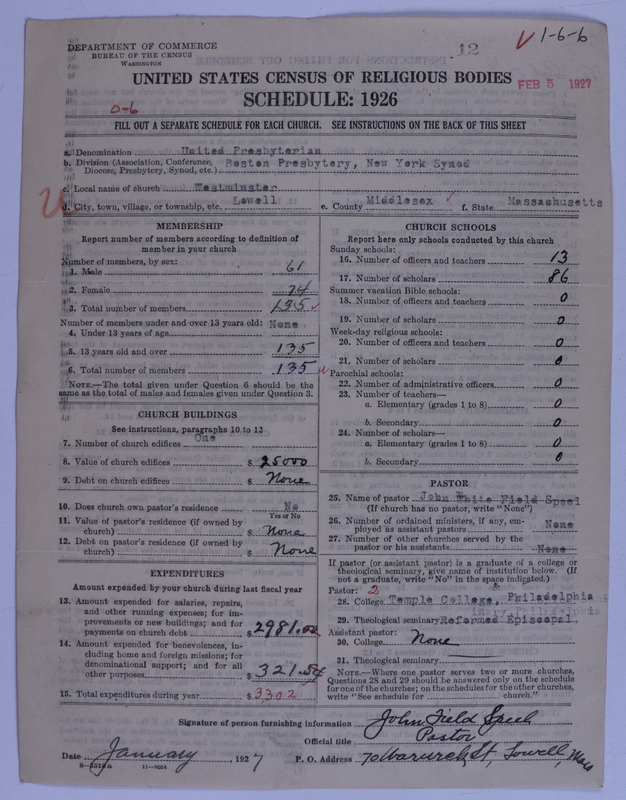 DEPARTMENT OF COMMERCE
BUREAU OF THE CENSUS
WASHINGTON
12
1-6-6
UNITED STATES CENSUS OF RELIGIOUS BODIES
FEB 5 1927
SCHEDULE: 1926
0-6
FILL OUT A SEPARATE SCHEDULE FOR EACH CHURCH. SEE INSTRUCTIONS ON THE BACK OF THIS SHEET
a. Denomination United Presbyterian
b. Division (Association, Conference, Diocese, Presbytery, Synod, etc.) Boston Presbytery, New York Synod
c. Local name of church Westminster
d. City, town, village, or township, etc. Lowell e. County Middlesex f. State Massachusetts
MEMBERSHIP
Report number of members according to definition of
member in your church
Number of members, by sex:
1. Male 61
2. Female 74
3. Total number of members 135
Number of members under and over 13 years old: None
4. Under 13 years of age
5. 13 years old and over 135
6. Total number of members 135
NOTE.—The total given under Question 6 should be the
same as the total of males and females given under Question 3.
CHURCH BUILDINGS
See instructions, paragraphs 10 to 12
7. Number of church edifices One
8. Value of church edifices $ 25000
9. Debt on church edifices $ None
10. Does church own pastor's residence? No
Yes or No
11. Value of pastor's residence (if owned by
church) $ None
12. Debt on pastor's residence (if owned by
church) $ None
EXPENDITURES
Amount expended by your church during last fiscal year
13. Amount expended for salaries, repairs,
and other running expenses; for im-
provements or new buildings; and for
payments on church debt $ 2981.00
14. Amount expended for benevolences, in-
cluding home and foreign missions; for
denominational support; and for all
other purposes $ 321.54
15. Total expenditures during year $ 3302
CHURCH SCHOOLS
Report here only schools conducted by this church
Sunday schools:
16. Number of officers and teachers 13
17. Number of scholars 86
Summer vacation Bible schools:
18. Number of officers and teachers 0
19. Number of scholars 0
Week-day religious schools:
20. Number of officers and teachers 0
21. Number of scholars 0
Parochial schools:
22. Number of administrative officers 0
23. Number of teachers—
a. Elementary (grades 1 to 8) 0
b. Secondary 0
24. Number of scholars—
a. Elementary (grades 1 to 8) 0
b. Secondary 0
PASTOR
25. Name of pastor John White Field Speel
(If church has no pastor, write "None")
26. Number of ordained ministers, if any, em-
ployed as assistant pastors None
27. Number of other churches served by the
pastor or his assistants None
If pastor (or assistant pastor) is a graduate of a college or
theological seminary, give name of institution below. (If
not a graduate, write "No" in the space indicated.)
Pastor: 2
28. College Temple College, Philadelphia
29. Theological seminary Reformed Episcopal,
Assistant pastor:
30. College None
31. Theological seminary
NOTE.—Where one pastor serves two or more churches,
Questions 28 and 29 should be answered only on the schedule
for one of the churches; on the schedules for the other churches,
write "See schedule for church."
Signature of person furnishing information John Field Speel
Official title Pastor
Date January, 1927 P. O. Address 70 Warwick St, Lowell, Mass
8-5516 a 11-9064